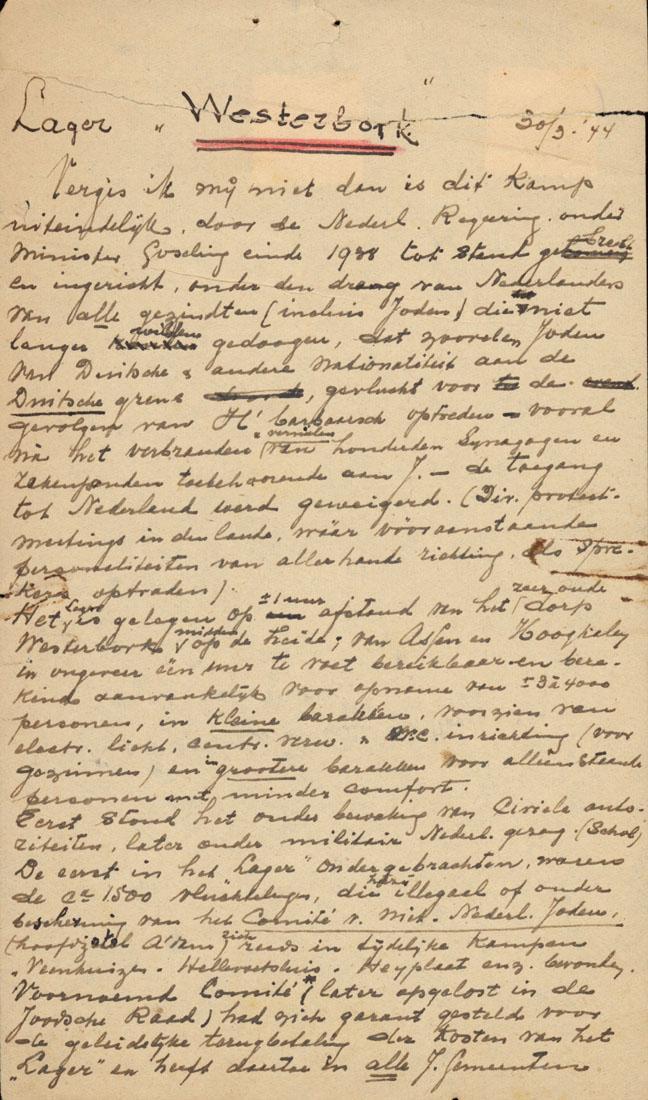 Lager „Westerbork" 30/3.'44
Vergis ik mij niet dan is dit Kamp
uiteindelijk, door de Nederl. Regeering onder
Minister Goseling einde 1938 tot stand gebracht
en ingericht, onder den drang van Nederlanders
van alle gezindten (incluis Joden) die niet
langer wilden gedoogen, dat zoovelen Joden
van Duitsche & andere nationaliteit aan de
Duitsche grens, gevlucht voor de
gevolgen van H' barbaarsch optreden – vooral
na het verbranden & vernielen van honderden Synagogen en
zakenpanden toebehoorende aan J. – de toegang
tot Nederland werd geweigerd. (Div. protest-
meetings in den lande, wáár vóóraanstaande
personaliteiten van allerhande richting, als Spre-
kers optraden).
Het Lager is gelegen op ± 1 uur afstand van het zeer oude dorp
Westerbork midden op de heide; van Assen en Hooghalen
in ongeveer één uur te voet bereikbaar en bere-
kend aanvankelijk voor opname van ± 3 à 4000
personen, in kleine barakken, voorzien van
electr. licht, centr. verw. & W.C. inrichting (voor
gezinnen) en in grootere barakken voor alléénstaande
personen met minder comfort.
Eerst stond het onder bewaking van Civiele auto-
riteiten, later onder militair Nederl. gezag. (Schol)
De eerst in het „Lager" ondergebrachten, waren
de ca 1500 vluchtelingen, die illegaal of onder
bescherming van het Comité v. niet. Nederl. Joden,
(hoofdzetel A'dam) zich reeds in tijdelijke Kampen
„Veenhuizen. Hellevoetsluis. Heyplaat enz. bevonden.
Voornoemd Comité (later opgelost in de
Joodsche Raad) had zich garant gesteld voor
de geleidelijke terugbetaling der Kosten van het
„Lager" en heeft daartoe in alle J. Gemeenten